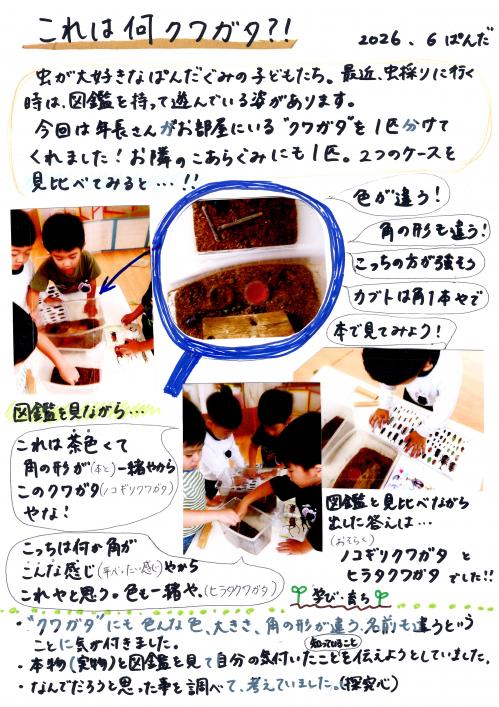 これは何クワガタ?!
2026.6 ぱんだ
虫が大好きなぱんだぐみの子どもたち。最近、虫採りに行く
時は、図鑑を持って遊んでいる姿があります。
今回は年長さんがお部屋にいる"クワガタ"を1匹分けて
くれました!お隣のこあらぐみにも1匹。2つのケースを
見比べてみると…!!
色が違う!
角の形も違う!
こっちの方が強そう
カブトは角1本やで
本で見てみよう!
図鑑を見ながら…
これは茶色くて
角の形が(本と)一緒やから
このクワガタ(ノコギリクワガタ)
やな!
こっちは何か角が
こんな感じ(平べったい感じ)やから
これやと思う。色も一緒や。(ヒラタクワガタ)
図鑑と見比べながら
出した答えは…
(おそらく)
ノコギリクワガタ と
ヒラタクワガタ でした!!
学び・育ち
・"クワガタ"にも色んな色、大きさ、角の形が違う、名前も違うという
ことに気が付きました。
・本物(実物)と図鑑を見て自分の気付いたことを伝えようとしていました。
知っていること
・なんでだろうと思った事を調べて、考えていました。(探究心)